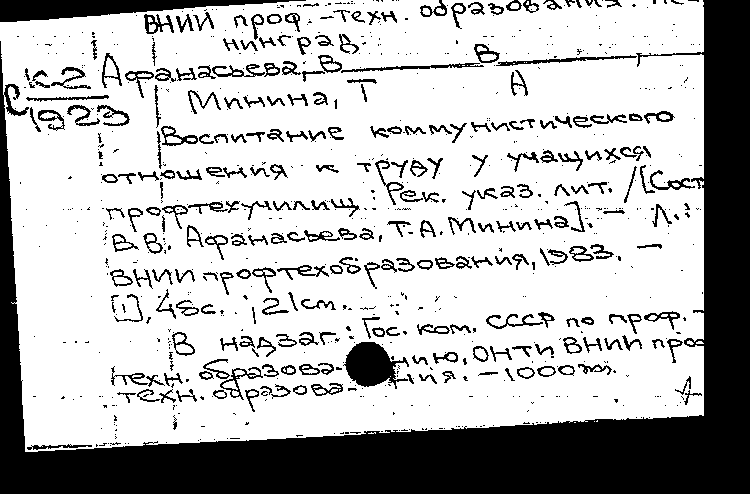 ВНИИ проф.-техн. образования.
нинград.
К-2 Афанасьева, В В
С 1923 Минина, Т А
Воспитание коммунистического
отношения к труду у учащихся
профтехучилищ: Рек. указ. лит. /[Сост.
В.В. Афанасьева, Т.А. Минина]. - Л.:
ВНИИ профтехобразования, 1983. -
[1], 48с. ; 21см.
В надзаг.: Гос. ком. СССР по проф.-
техн. образова- нию, ОНТИ ВНИИ про
техн. образова- ния. - 1000